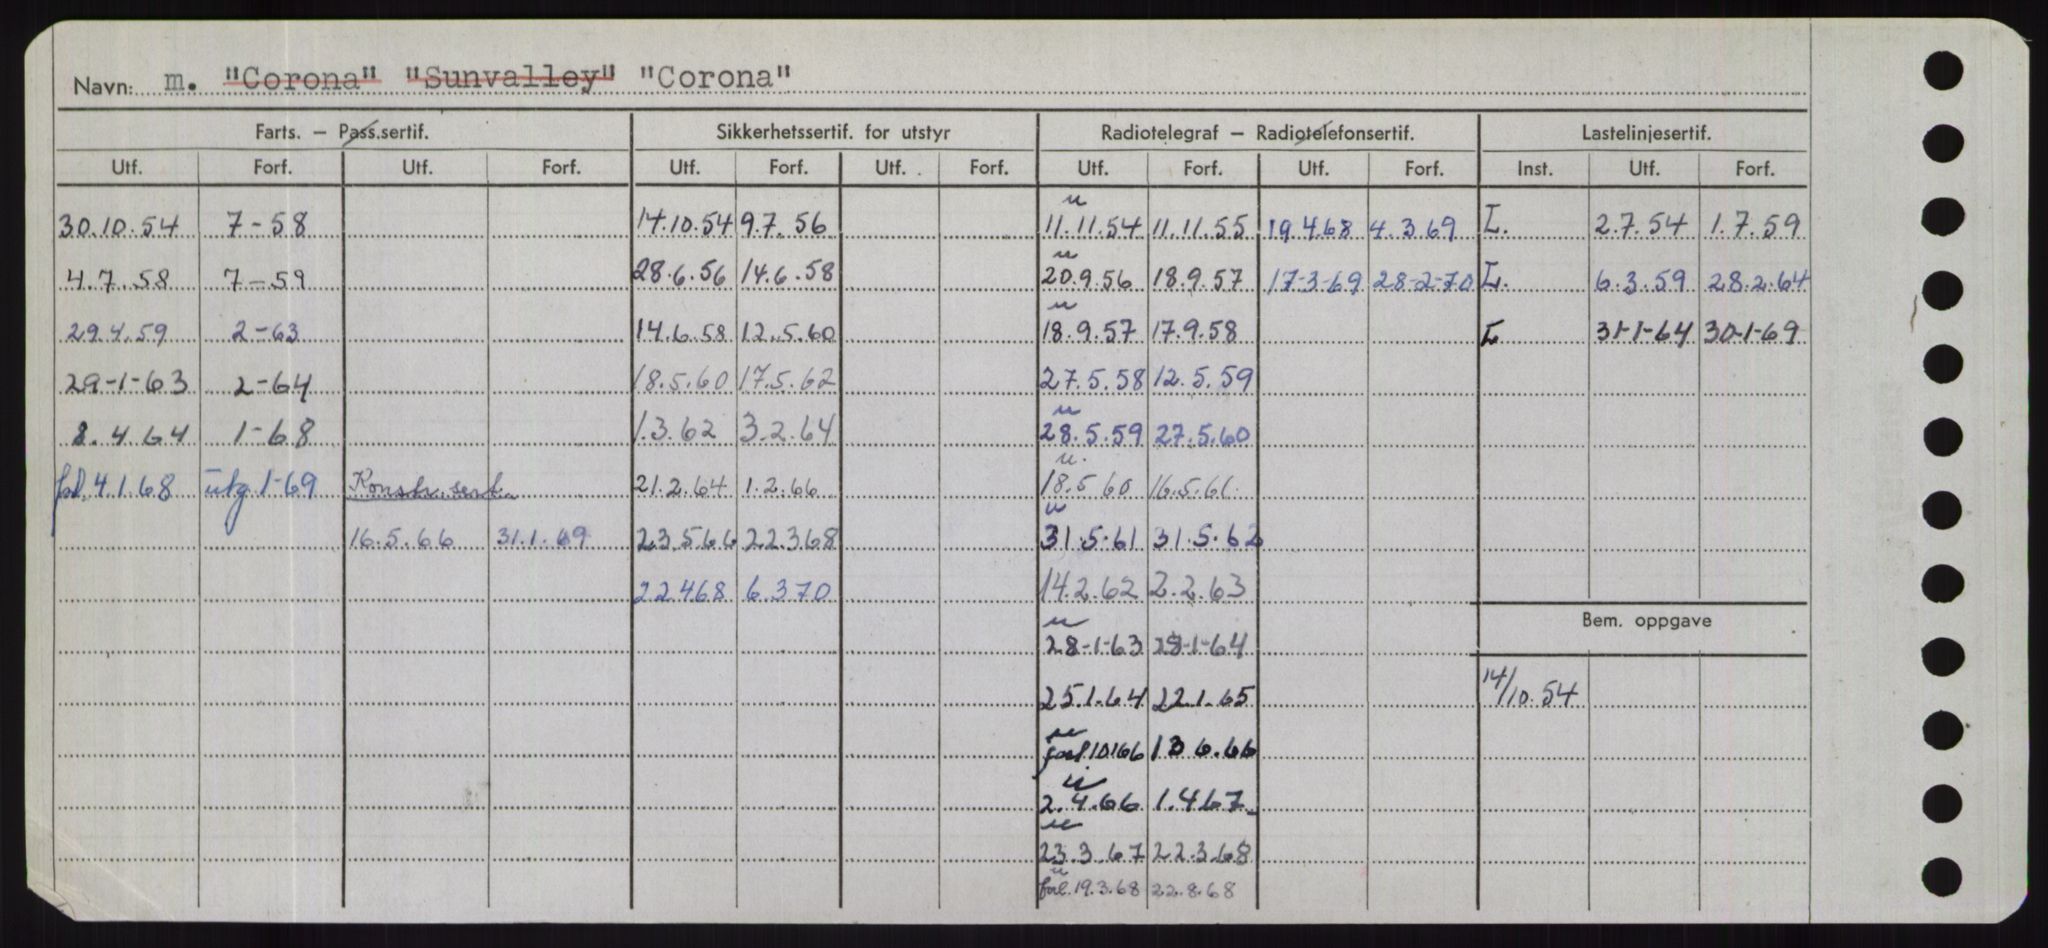 Navn: m. "Corona" "Sunvalley" "Corona"
Farts. – Pass.sertif. Sikkerhetssertif. for utstyr Radiotelegraf – Radiotelefonsertif. Lastelinjesertif.
Utf. Forf. Utf. Forf. Utf. Forf. Utf. Forf. Utf. Forf. Utf. Forf. Inst. Utf. Forf.
u
30.10.54 7-58 14.10.54 9.7.56 11.11.54 11.11.55 19.4.68 4.3.69 L. 2.7.54 1.7.59
u
4.7.58 7-59 28.6.56 14.6.58 20.9.56 18.9.57 17-3-69 28-2-70 L. 6.3.59 28.2.64
u
29.4.59 2-63 14.6.58 12.5.60 18.9.57 17.9.58 L 31-1-64 30-1-69
29-1-63 2-64 18.5.60 17.5.62 27.5.58 12.5.59
u
8.4.64 1-68 1.3.62 3.2.64 28.5.59 27.5.60
u.
4.1.68 utg 1-69 Konstr. sert. 21.2.64 1.2.66 18.5.60 16.5.61.
u
16.5.66 31.1.69 23.5.66 22.3.68 31.5.61 31.5.62
22.4.68 6.3.70 14.2.62 2.2.63
Bem. oppgave
u
28-1-63 28-1-64
25.1.64 22.1.65 14/10.54
u
forl 10166 13 6.66
u
2.4.66 1.4.67
u
23.3.67 22.3.68
u
forl. 19.3.68 22.8.68